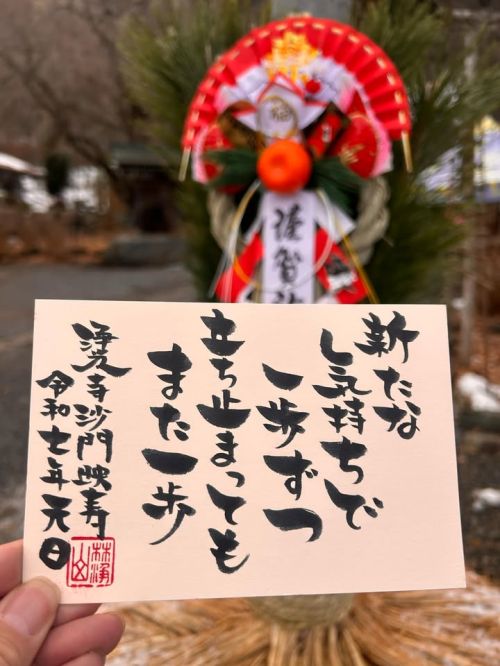 謹賀新
新たな
気持ちで
一歩ずつ
立ち止まっても
また一歩
浄光寺沙門映寿
令和七年元日